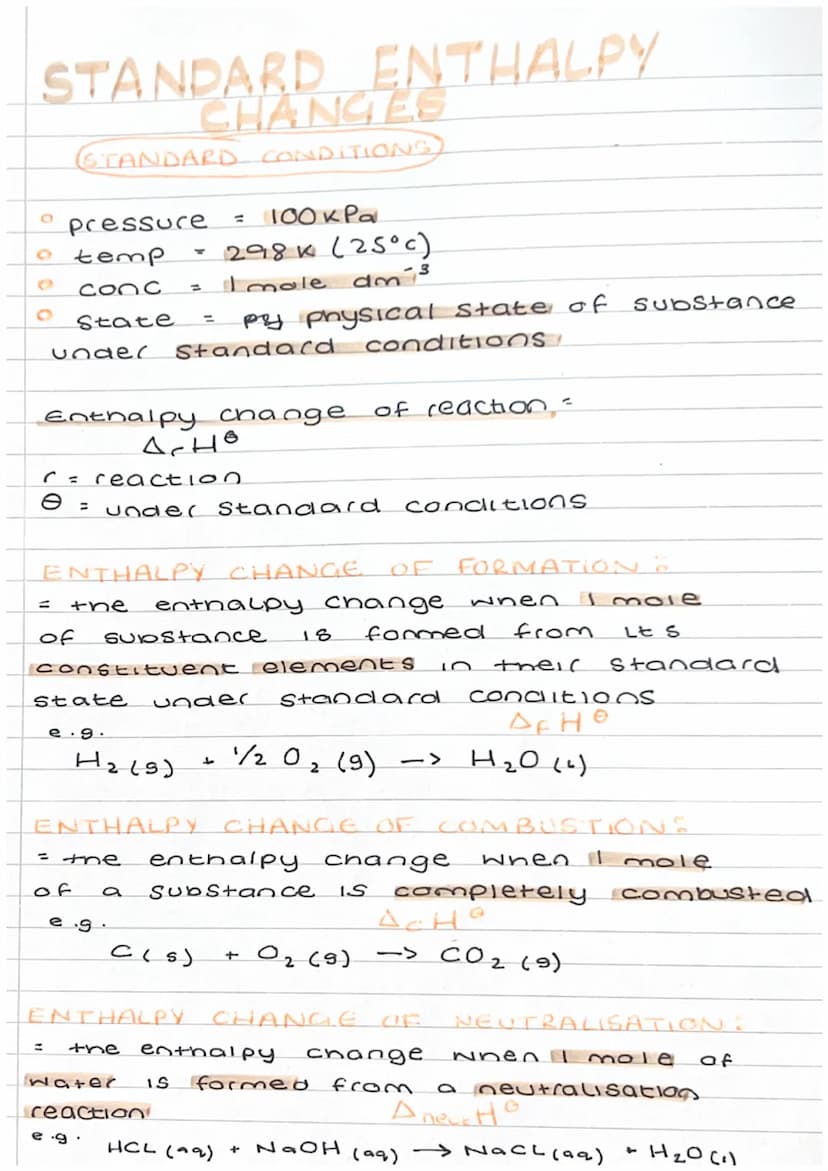 STANDARD ENTHALPY
CHANGES
STANDARD CONDITIONS
◦ pressure = 100 kPa
◦ temp = 298 K (25°c)
◦ conc = 1 mole dm⁻³
◦ state = physical state of substance
under standard conditions
Enthalpy change of reaction =
ΔrH⦵
r = reaction
⦵ = under standard conditions
ENTHALPY CHANGE OF FORMATION:
= the enthalpy change when 1 mole
of substance is formed from its
constituent elements in their standard
state under standard conditions
e.g. ΔfH⦵
H₂(g) + 1/2 O₂ (g) -> H₂O (l)
ENTHALPY CHANGE OF COMBUSTION:
= the enthalpy change when 1 mole
of a substance is completely combusted
e.g. ΔcH⦵
C(s) + O₂ (g) -> CO₂ (g)
ENTHALPY CHANGE OF NEUTRALISATION:
= the enthalpy change when 1 mole of
water is formed from a neutralisation
reaction ΔneutH⦵
e.g. HCL (aq) + NaOH (aq) -> NaCL (aq) + H₂O (l)